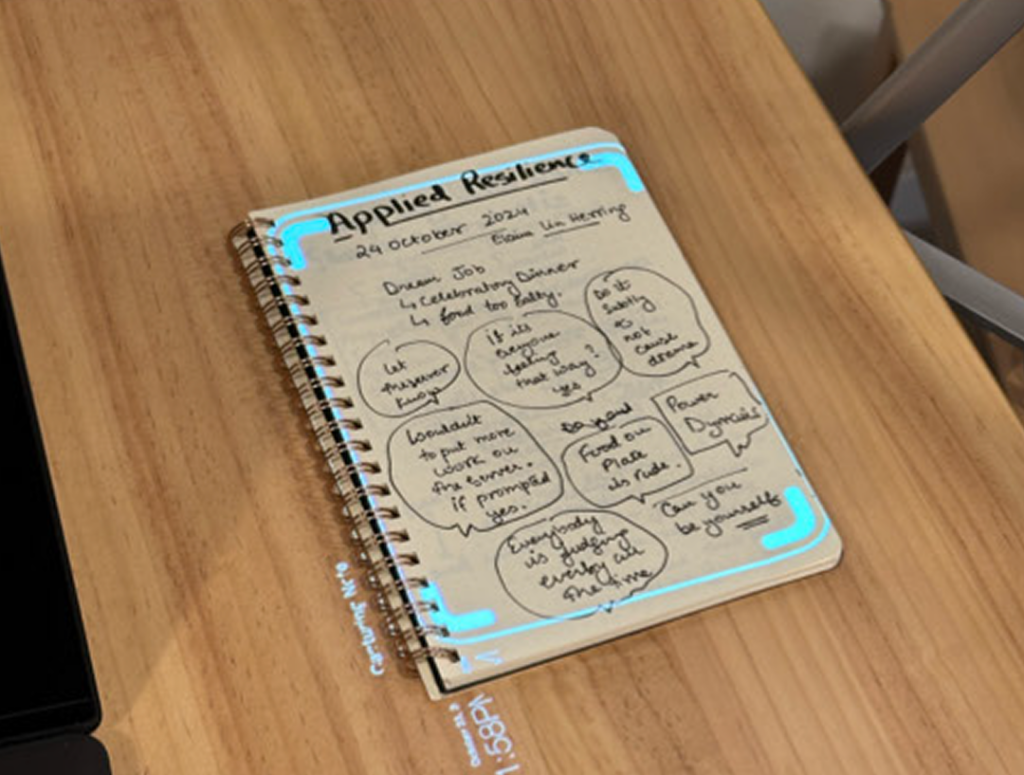 Applied Resilience
24 October 2024
Elaine Lin Hering
Dream Job
↳ Celebratory Dinner
↳ food too salty.
Let
the server
know
If it's
anyone
feeling
that way?
yes
Do it
subtly
to
not
cause
drama
Wouldn't
to put more
work on
the server.
if prompted
yes.
Food on
Plate
is rude.
Power
Dynamics
Can you
be yourself
Everybody
is judging
all
the time
1:58PM